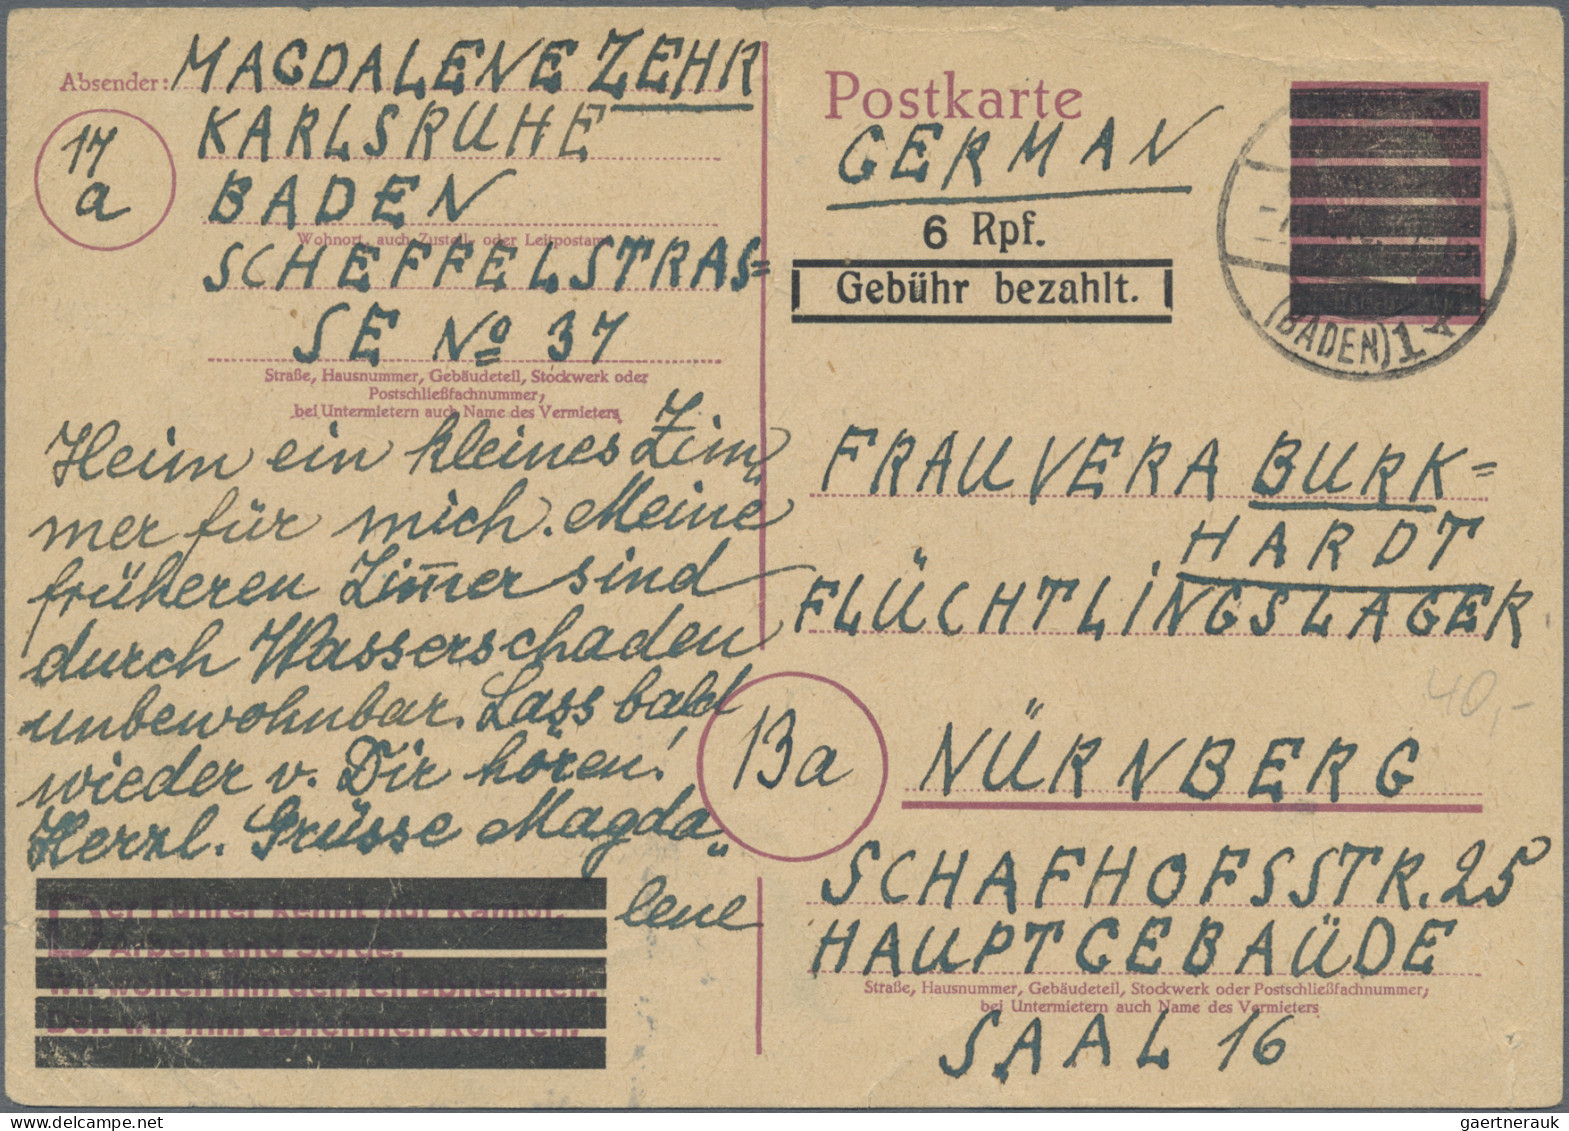 Absender: MAGDALENE ZEHR
17
a
KARLSRUHE
BADEN
Wohnort, auch Zustell- oder Leitpostamt
SCHEFFELSTRAS=
SE No 37
Straße, Hausnummer, Gebäudeteil, Stockwerk oder
Postschließfachnummer;
bei Untermietern auch Name des Vermieters
Heim ein kleines Zim„
mer für mich. Meine
früheren Zim̅er sind
durch Wasserschaden
unbewohnbar. Lass bald
wieder v. Dir hören!
Herzl. Grüsse Magda„
lene
Der Führer kennt nur Kampf,
Arbeit und Sorge.
Wir wollen ihm den Teil abnehmen,
Den wir ihm abnehmen können.
Postkarte
GERMAN
6 Rpf.
Gebühr bezahlt.
(BADEN) 1
FRAU VERA BURK=
HARDT
FLÜCHTLINGSLAGER
40,-
13a
NÜRNBERG
SCHAFHOFSSTR. 25
HAUPTGEBAÜDE
Straße, Hausnummer, Gebäudeteil, Stockwerk oder Postschließfachnummer;
bei Untermietern auch Name des Vermieters
SAAL 16
gaertnerauk